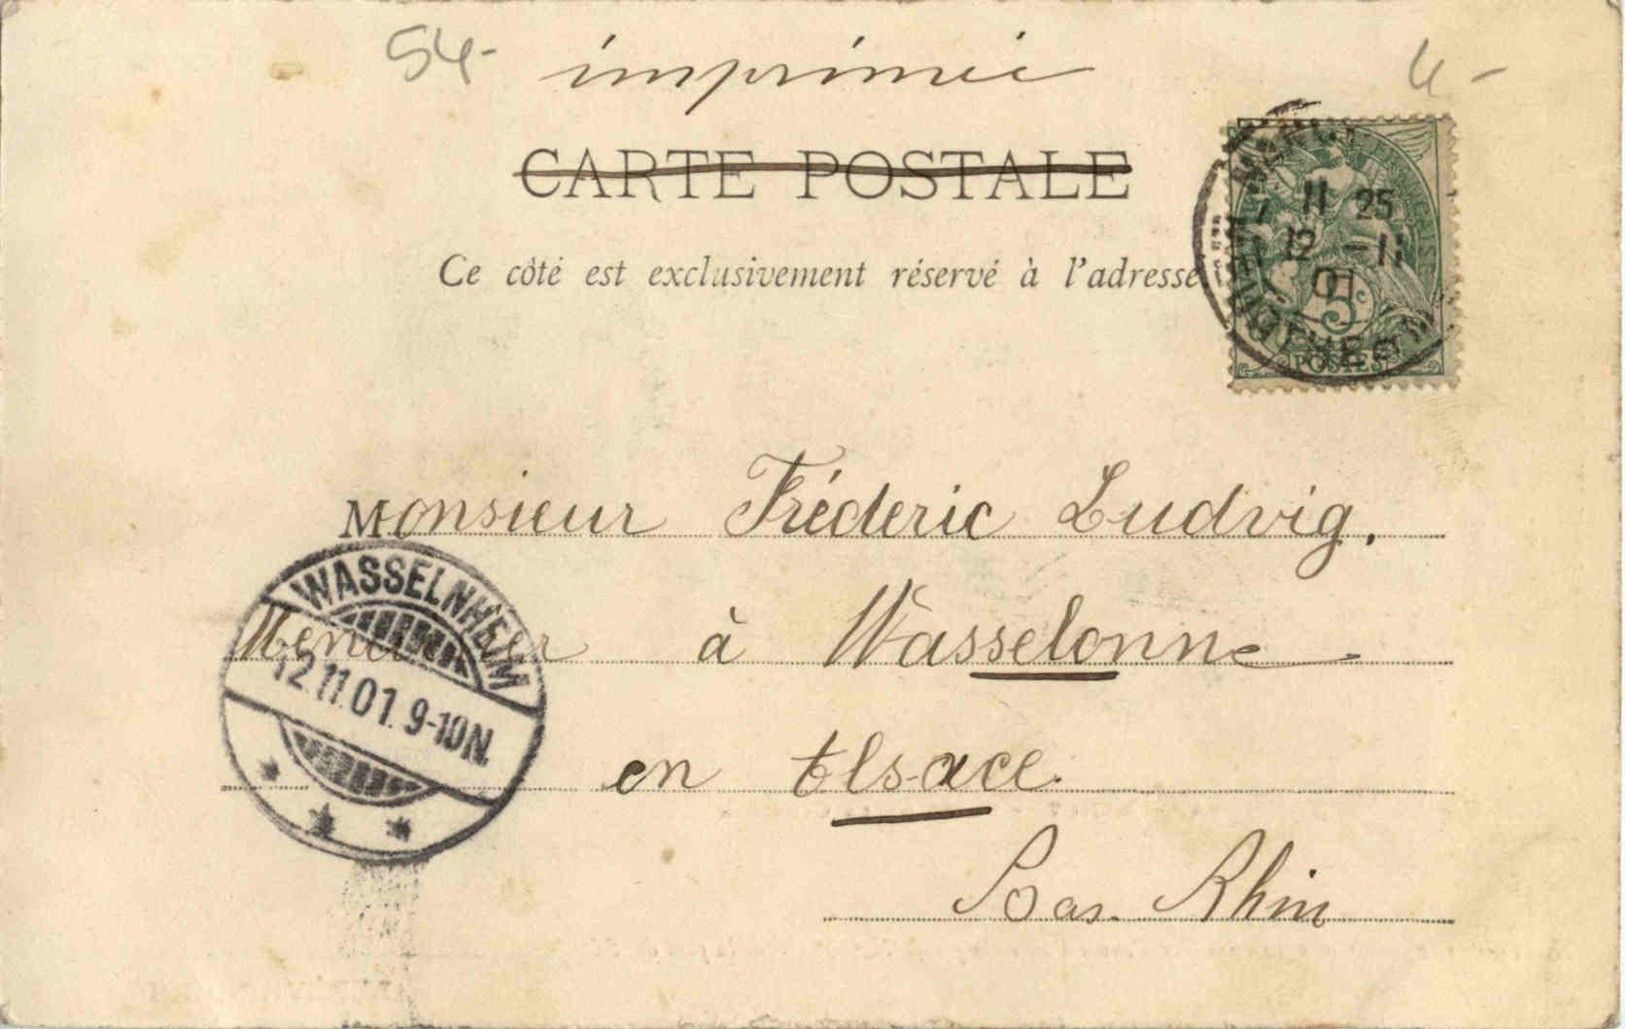 54-
imprimée
4-
CARTE POSTALE
Ce côté est exclusivement réservé à l'adresse
11 25
12 -11
01
5c
POSTES
Monsieur Fréderic Ludvig.
à Wasselonne
en Elsace.
Bas. Rhin
WASSELNHEIM
12.11.01. 9-10N.